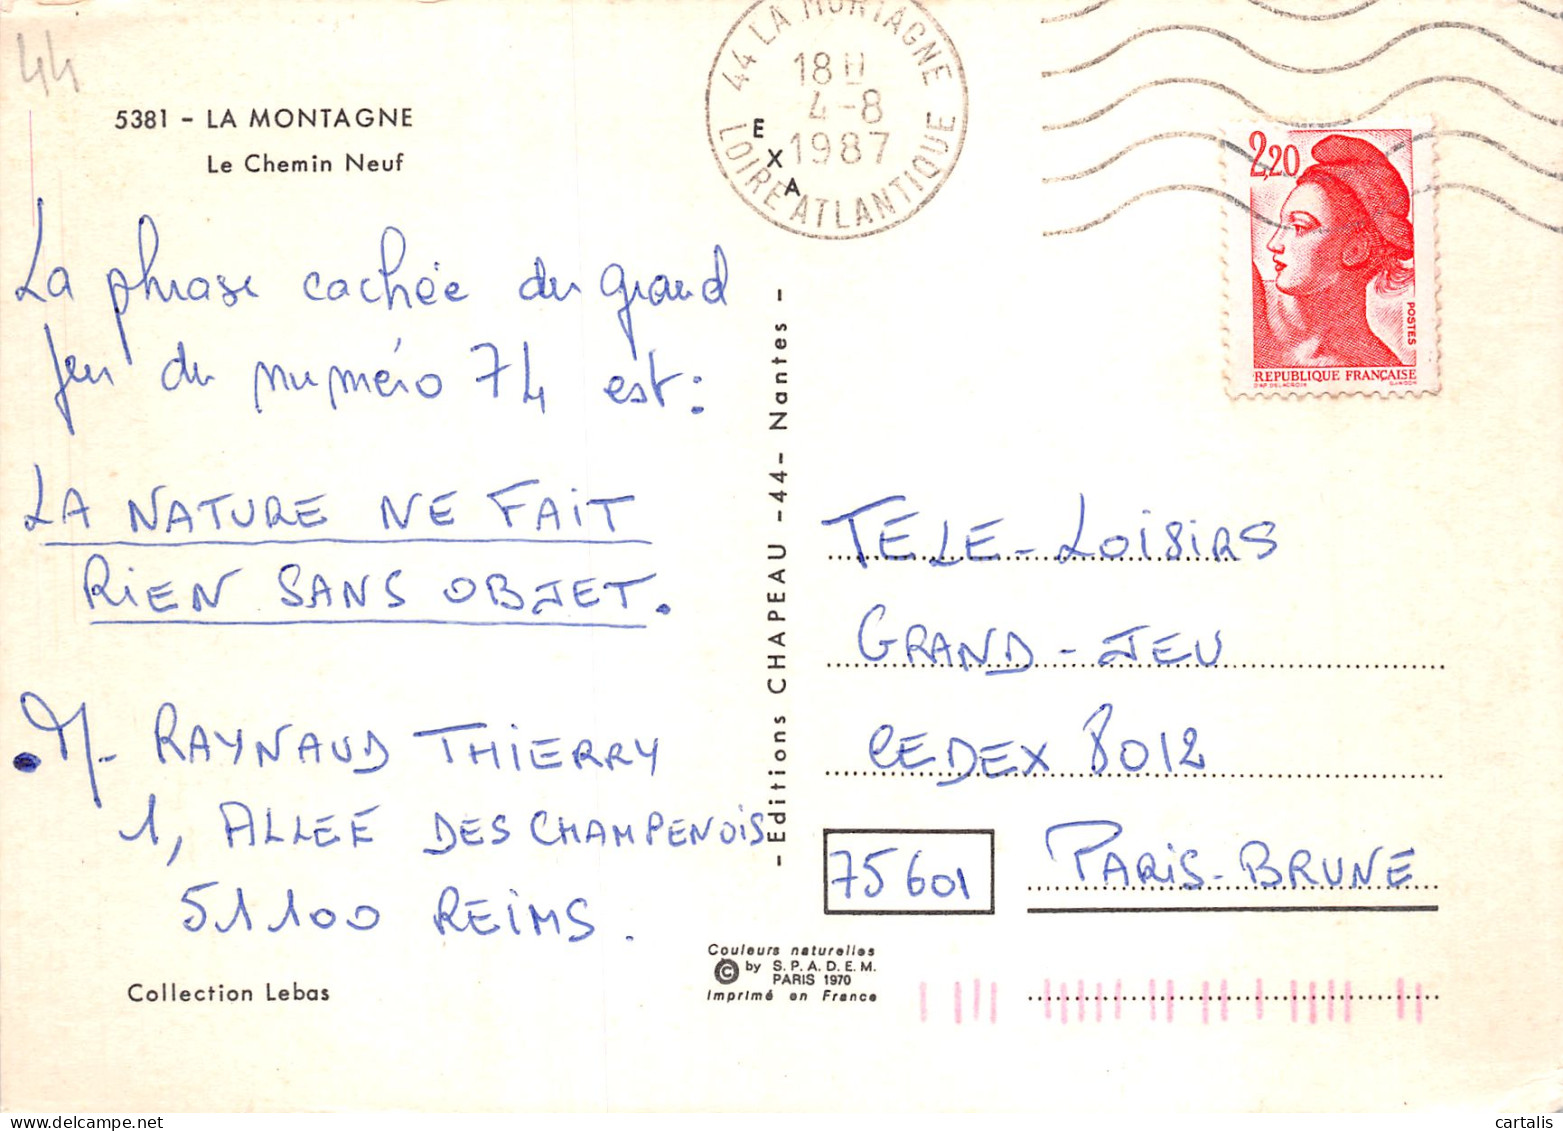 44
5381 - LA MONTAGNE
Le Chemin Neuf
La phrase cachée du grand
jeu du numéro 74 est :
LA NATURE NE FAIT
RIEN SANS OBJET.
M. RAYNAUD THIERRY
1, ALLEE DES CHAMPENOIS
51100 REIMS.
Collection Lebas
- Editions CHAPEAU -44- Nantes -
44 LA MONTAGNE
18 H
4-8
1987
LOIRE ATLANTIQUE
EXA
2,20
POSTES
REPUBLIQUE FRANÇAISE
D'AP. DELACROIX GANDON
TELE-LOISIRS
GRAND-JEU
CEDEX 8012
75601 PARIS-BRUNE
Couleurs naturelles
© by S.P.A.D.E.M.
PARIS 1970
Imprimé en France
cartalis